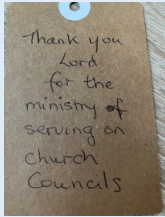 Thank you
Lord
for the
ministry of
serving on
church
Councils